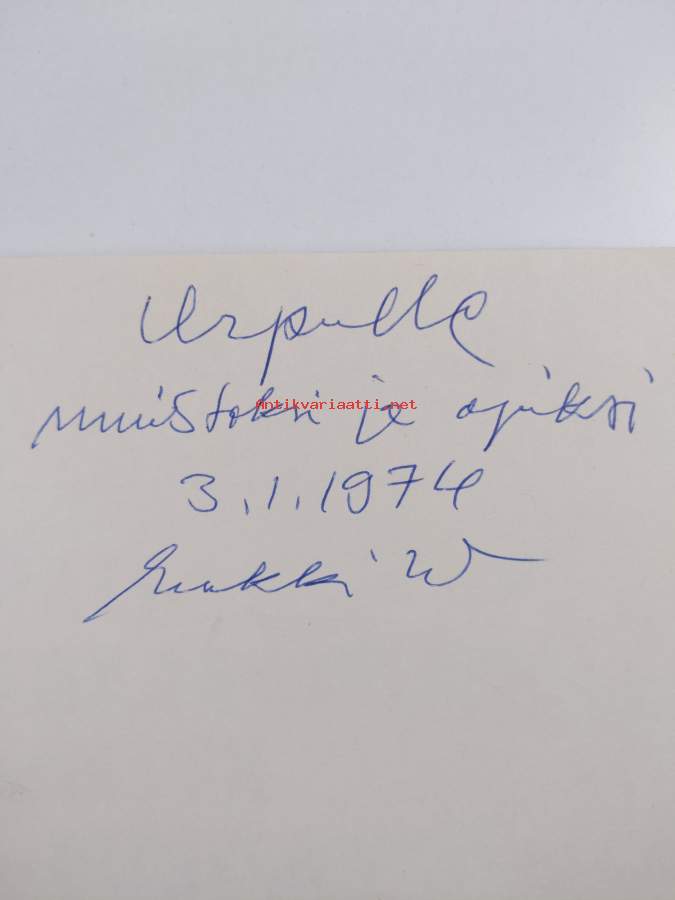 Urpulle
muistoksi ja opiksi
Antikvariaatti.net
3.1.1974
W